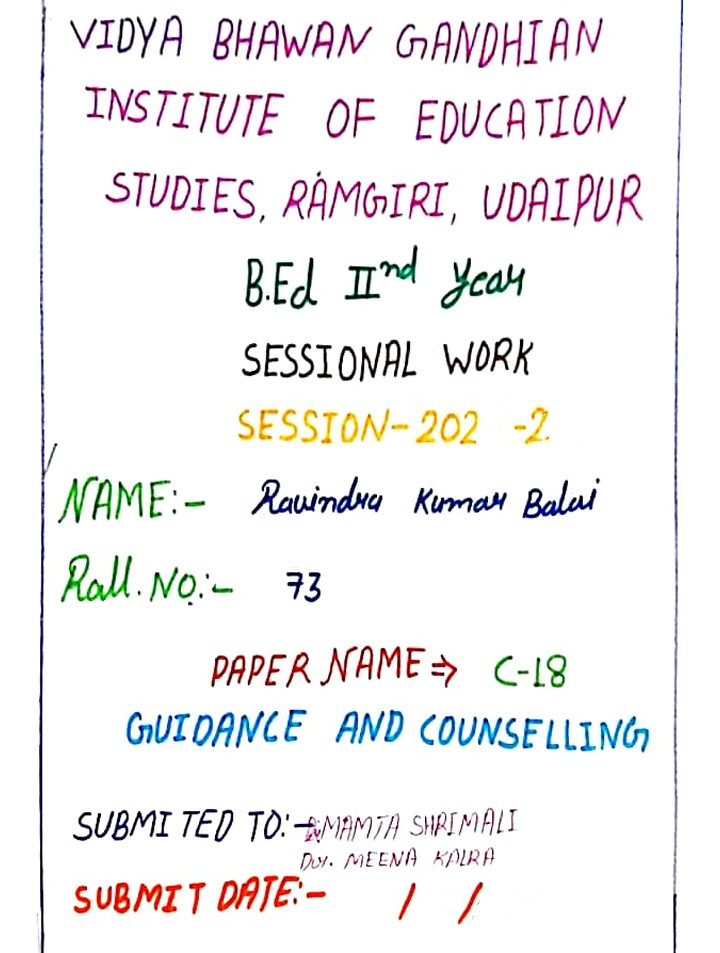 VIDYA BHAWAN GANDHIAN
INSTITUTE OF EDUCATION
STUDIES, RAMGIRI, UDAIPUR
B.Ed IInd Year
SESSIONAL WORK
SESSION-202 -2
NAME:- Ravindra Kumar Balai
Roll.NO:- 73
PAPER NAME⇒ C-18
GUIDANCE AND COUNSELLING
SUBMITED TO:- Dr. MAMTA SHRIMALI
Dr. MEENA KALRA
SUBMIT DATE:- / /